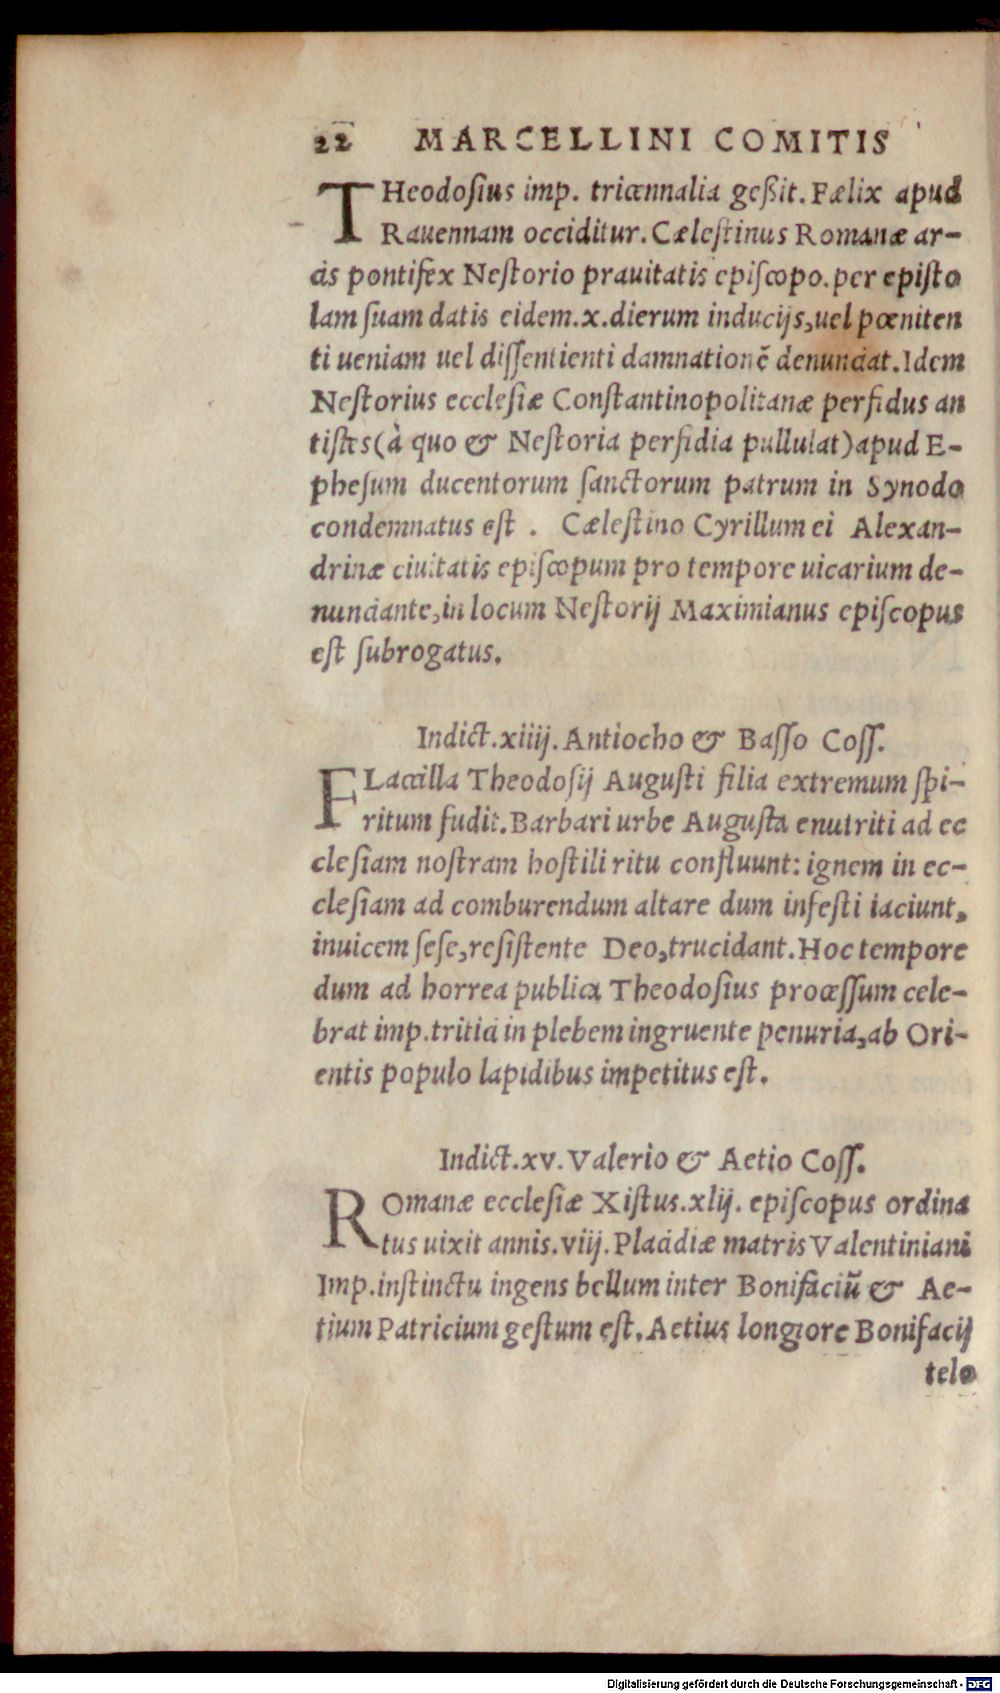 22 MARCELLINI COMITIS
THeodosius imp. tricennalia geßit. Fælix apud
Rauennam occiditur. Cælestinus Romanæ ar-
cis pontifex Nestorio prauitatis episcopo.per episto
lam suam datis eidem.x.dierum inducijs,uel pœniten
ti ueniam uel dissentienti damnationẽ denunciat.Idem
Nestorius ecclesiæ Constantinopolitanæ perfidus an
tistes(à quo & Nestoria perfidia pullulat)apud E-
phesum ducentorum sanctorum patrum in Synodo
condemnatus est . Cælestino Cyrillum ei Alexan-
drinæ ciuitatis episcopum pro tempore uicarium de-
nunciante,in locum Nestorij Maximianus episcopus
est subrogatus.
Indict.xiiij. Antiocho & Basso Coss.
FLaccilla Theodosij Augusti filia extremum spi-
ritum fudit.Barbari urbe Augusta enutriti ad ec
clesiam nostram hostili ritu confluunt: ignem in ec-
clesiam ad comburendum altare dum infesti iaciunt,
inuicem sese,resistente Deo,trucidant.Hoc tempore
dum ad horrea publica Theodosius processum cele-
brat imp.tritici in plebem ingruente penuria,ab Ori-
entis populo lapidibus impetitus est.
Indict.xv. Valerio & Aetio Coss.
ROmanæ ecclesiæ Xistus.xlij. episcopus ordina
tus uixit annis.viij.Placidiæ matris Valentiniani
Imp.instinctu ingens bellum inter Bonifaciũ & Ae-
tium Patricium gestum est.Aetius longiore Bonifacij
telo
Digitalisierung gefördert durch die Deutsche Forschungsgemeinschaft - DFG